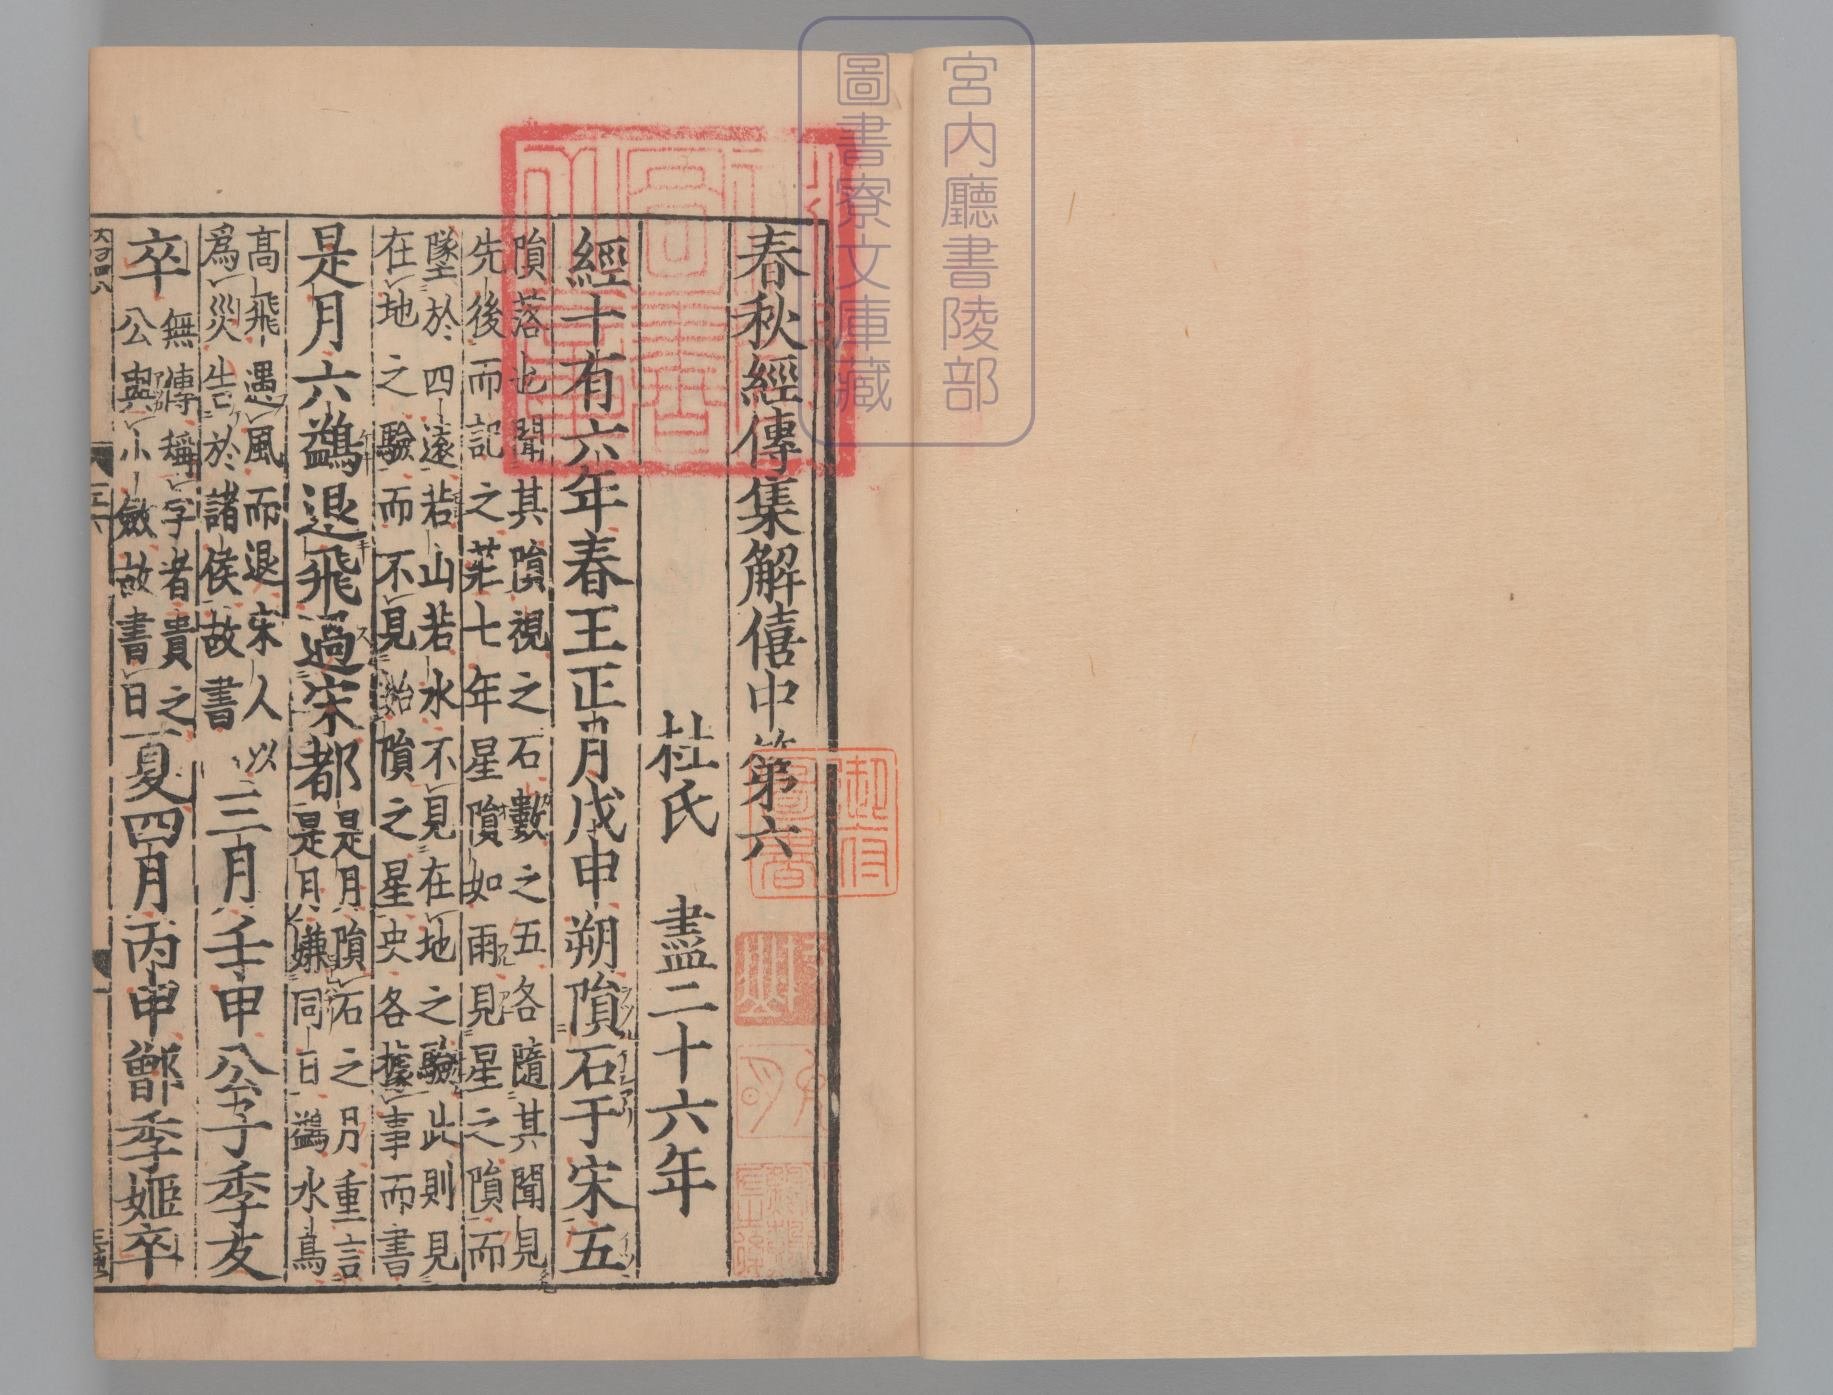 宮内廳書陵部
圖書寮文庫藏
春秋經傳集解僖中第六
杜氏 盡二十六年
經十有六年春王正月戊申朔隕石于宋五
隕落也聞其隕視之石數之五各隨其聞見
先後而記之莊七年星隕如雨見星之隕而
墜於四遠若山若水不見在地之驗此則見
在地之驗而不見始隕之星史各據事而書
是月六鷁退飛過宋都
是月隕石之月重言
是月嫌同日鷁水鳥
高飛遇風而退宋人以
爲災告於諸侯故書
三月壬申公子季友
卒
無傳稱字者貴之
公與小斂故書日
夏四月丙申鄫季姬卒
御府
圖書